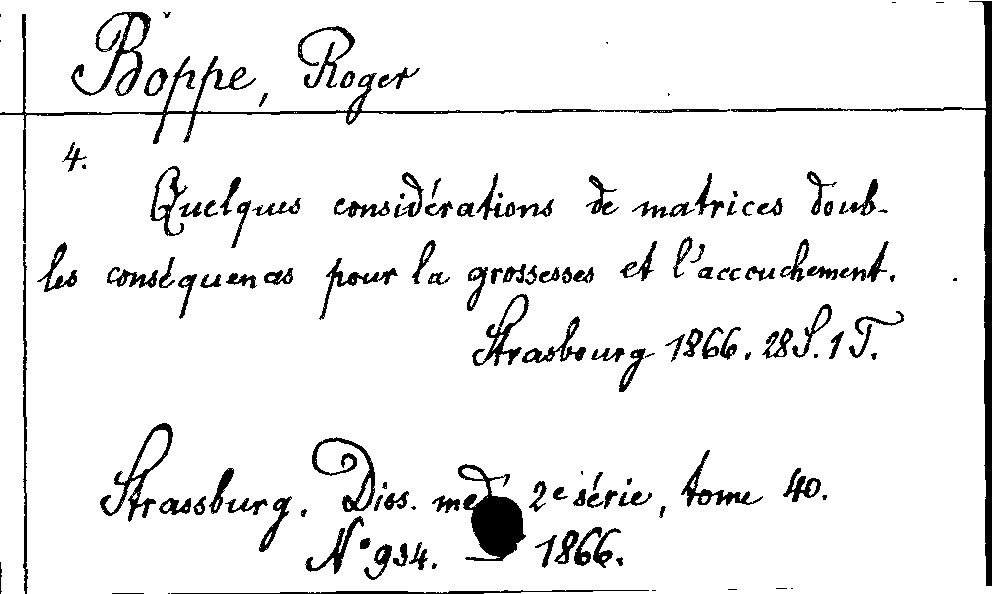 Boppe, Roger
4.
Quelques considérations de matrices doub-
les conséquences pour la grossesses et l'accouchement.
Strasbourg 1866. 28 S. 1 T.
Strassburg. Diss. med 2e série, tome 40.
No 934. — 1866.